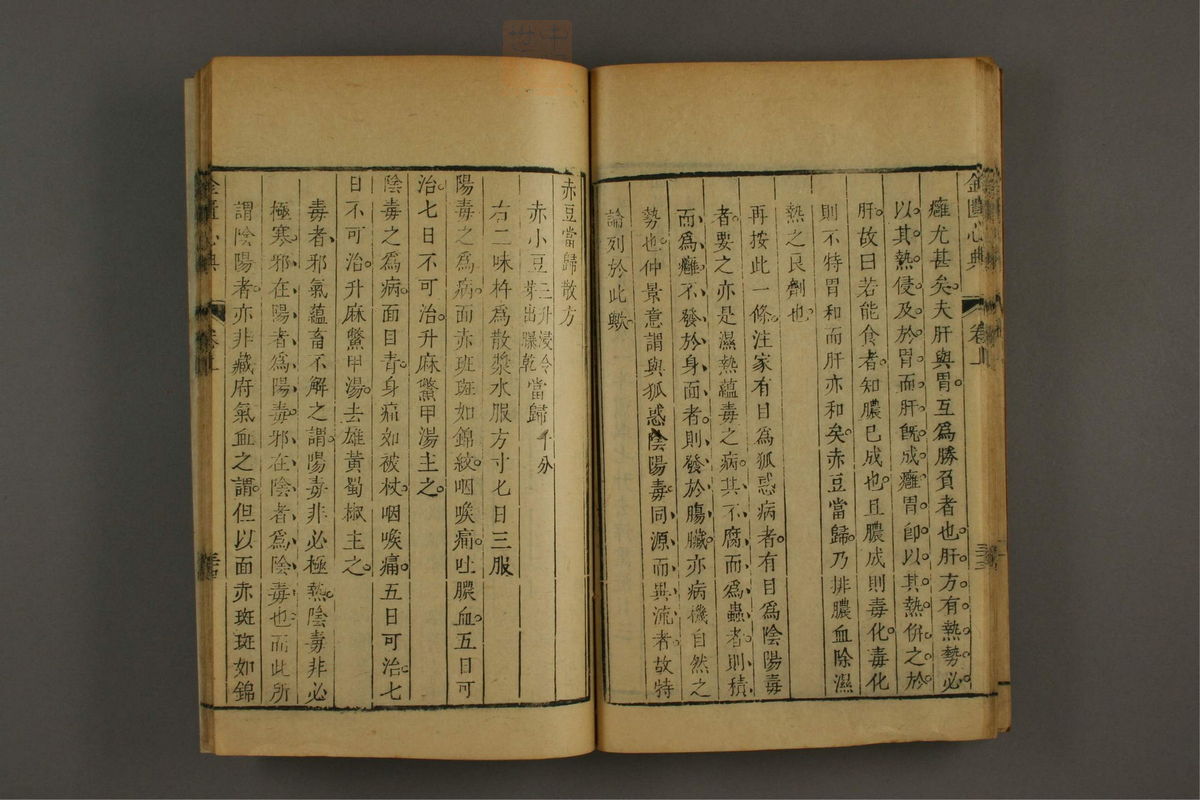 金匱心典
卷上
癰尤甚矣夫肝與胃互爲勝負者也肝方有熱勢必
以其熱侵及於胃而肝旣成癰胃卽以其熱倂之於
肝故曰若能食者知膿已成也且膿成則毒化毒化
則不特胃和而肝亦和矣赤豆當歸乃排膿血除濕
熱之良劑也
再按此一條注家有目爲狐惑病者有目爲陰陽毒
者要之亦是濕熱蘊毒之病其不腐而爲蟲者則積
而爲癰不發於身面者則發於腸臟亦病機自然之
勢也仲景意謂與狐惑陰陽毒同源而異流者故特
論列於此歟
赤豆當歸散方
赤小豆三升浸令芽出曝乾當歸十分
右二味杵爲散漿水服方寸匕日三服
陽毒之爲病面赤斑斑如錦紋咽喉痛吐膿血五日可
治七日不可治升麻鱉甲湯主之
陰毒之爲病面目青身痛如被杖咽喉痛五日可治七
日不可治升麻鱉甲湯去雄黃蜀椒主之
毒者邪氣蘊畜不解之謂陽毒非必極熱陰毒非必
極寒邪在陽者爲陽毒邪在陰者爲陰毒也而此所
謂陰陽者亦非藏府氣血之謂但以面赤斑斑如錦
金匱心典
卷上